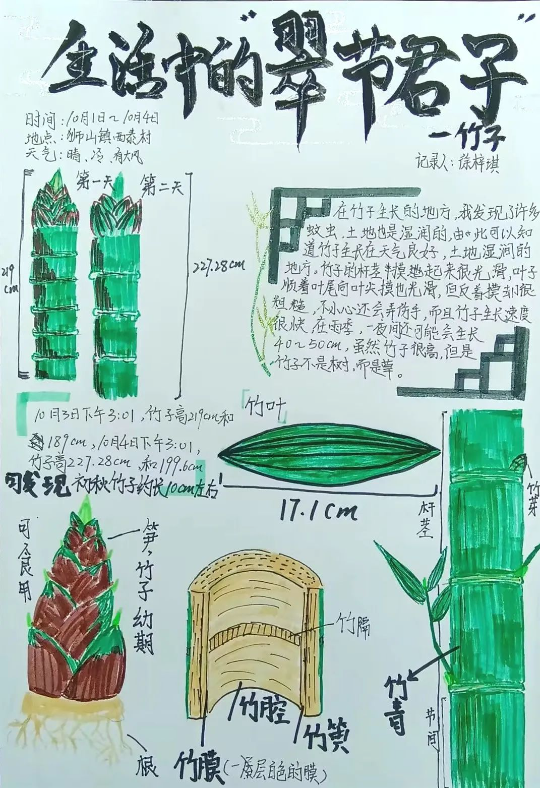 生活中的"翠节君子"
—竹子
时间:10月1日~10月4日
地点:狮山镇西泰村
天气:晴、冷、有大风
记录人:徐梓琪
第一天
第二天
219cm
227.28cm
在竹子生长的地方,我发现了许多
蚊虫,土地也是湿润的,由此可以知
道竹子生长在天气良好,土地湿润的
地方。竹子的杆茎摸她起来很光滑,叶子
顺着叶尾向叶尖摸也光滑,但反着摸却很
粗糙,不小心还会弄伤手,而且竹子生长速度
很快,在雨季,一夜间还可能会生长
40~50cm,虽然竹子很高,但是
竹子不是树,而是草。
10月3日下午3:01,竹子高219cm和
189cm,10月4日下午3:01,
竹子高227.28cm,和199.6cm
可发现初秋竹子约长10cm左右
竹叶
17.1cm
竹芽
杆茎
可食用
笋,竹子幼期
竹隔
竹腔
竹簧
竹青
节间
根
竹膜(一层白色的膜)